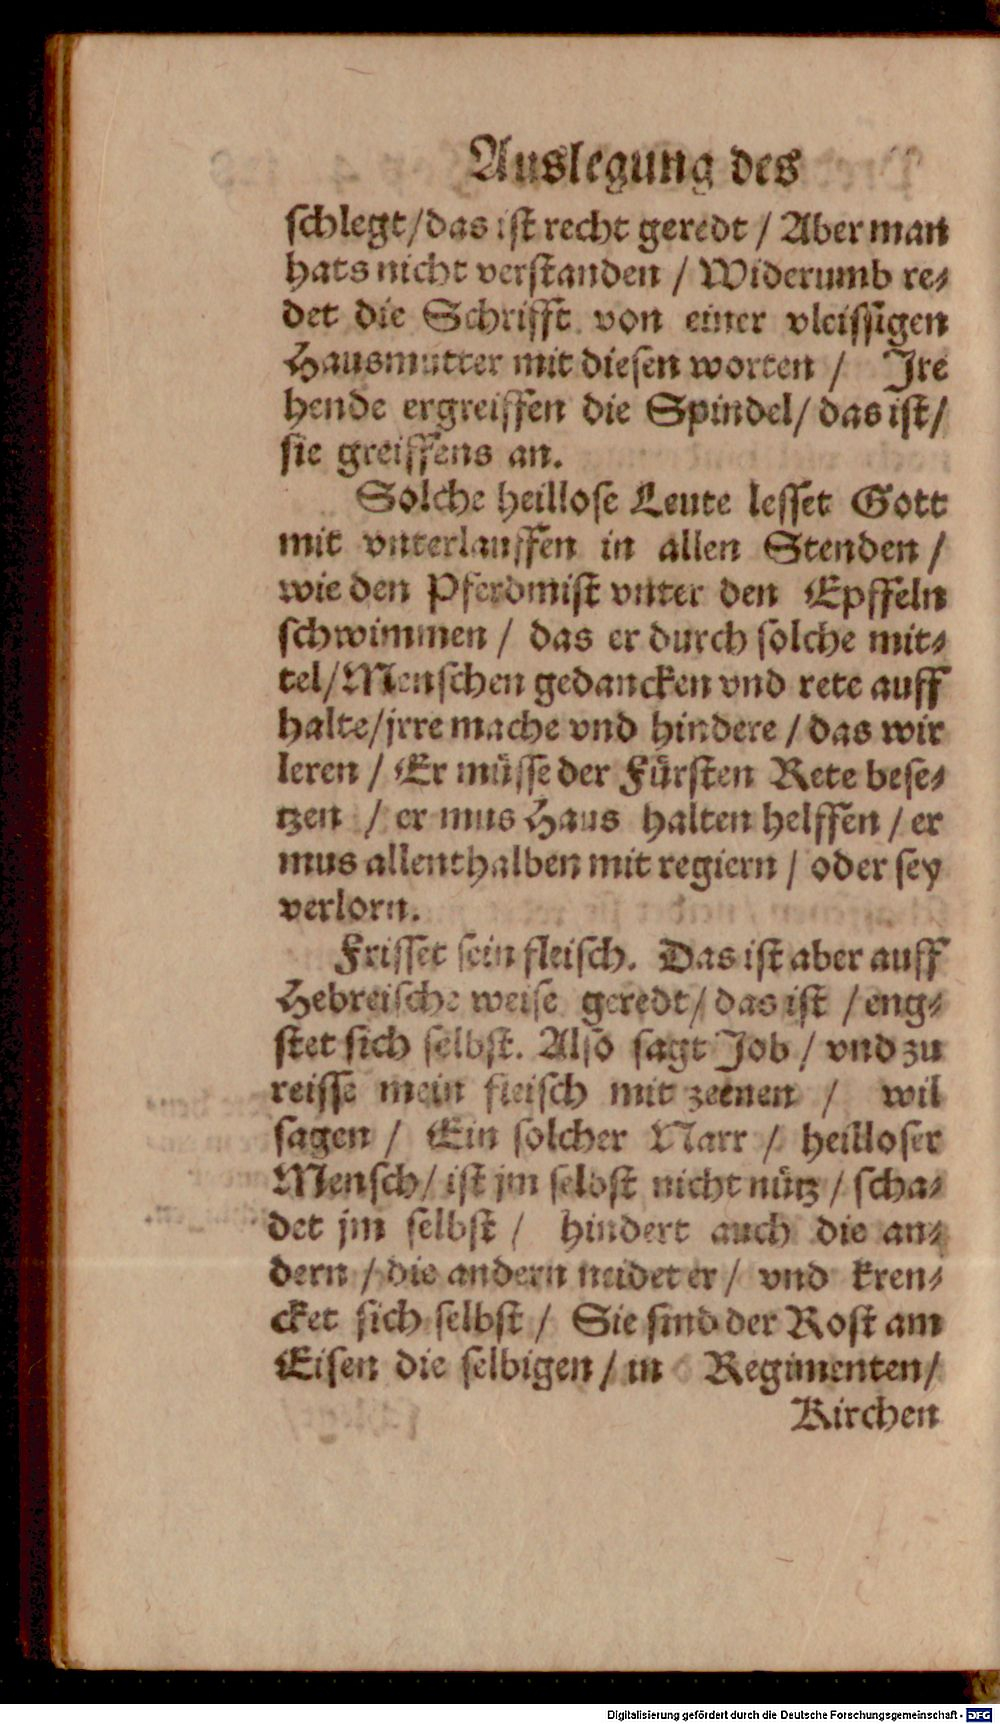 Auslegung des
schlegt/das ist recht geredt / Aber man
hats nicht verstanden / Widerumb re⸗
det die Schrifft von einer vleissigen
Hausmutter mit diesen worten / Jre
hende ergreiffen die Spindel/ das ist/
sie greiffens an.
Solche heillose Leute lesset Gott
mit vnterlauffen in allen Stenden /
wie den Pferdmist vnter den Epffeln
schwimmen / das er durch solche mit⸗
tel/Menschen gedancken vnd rete auff
halte/jrre mache vnd hindere / das wir
leren / Er müsse der Fürsten Rete bese⸗
tzen / er mus Haus halten helffen / er
mus allenthalben mit regiern / oder sey
verlorn.
Frisset sein fleisch. Das ist aber auff
Hebreische weise geredt/ das ist / eng⸗
stet sich selbst. Also sagt Job / vnd zu
reisse mein fleisch mit zeenen / wil
sagen / Ein solcher Narr / heilloser
Mensch/ ist jm selbst nicht nütz / scha⸗
det jm selbst / hindert auch die an⸗
dern / die andern neidet er / vnd kren⸗
cket sich selbst / Sie sind der Rost am
Eisen die selbigen / in Regimenten/
Kirchen
Digitalisierung gefördert durch die Deutsche Forschungsgemeinschaft - DFG